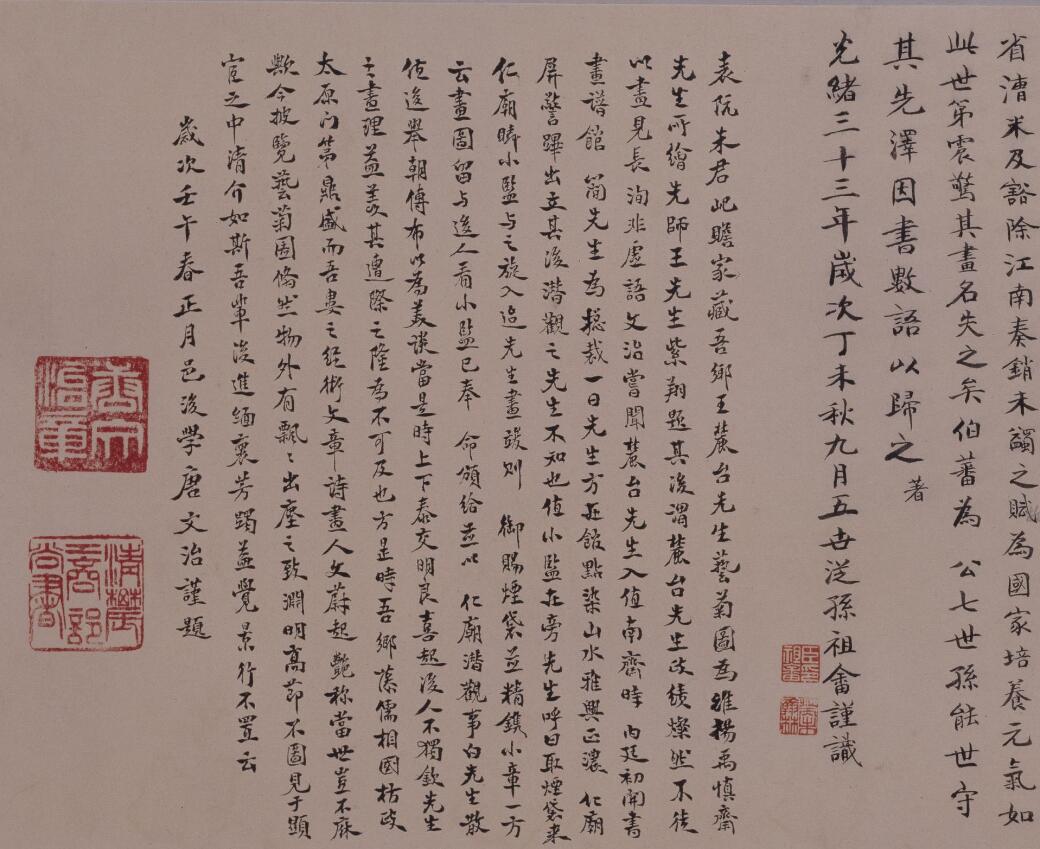 省漕米及豁除江南奏銷未蠲之賦為國家培養元氣如
此世第震驚其畫名失之矣伯蕃為 公七世孫能世守
其先澤因書數語以歸之 著
光緒三十三年歲次丁未秋九月五世從孫祖畬謹識
表阮朱君屺瞻家藏吾鄉王麓台先生藝菊圖為維揚禹慎齋
先生所繪先師王先生紫翔題其後謂麓台先生政績燦然不徒
以畫見長洵非虛語文治嘗聞麓台先生入值南齋時 內廷初開書
畫譜館 簡先生為總裁一日先生方在館點染山水雅興正濃 仁廟
屏警蹕出立其後潛觀之先生不知也值小監在旁先生呼曰取煙袋來
仁廟瞬小監與之旋入迨先生畫竣則 御賜煙袋並精鐫小章一方
云畫圖留與後人看小監已奉 命頒給並以 仁廟潛觀事白先生散
值後舉朝傳布以為美談當是時上下泰交明良喜起後人不獨欽先生
之畫理益羨其遭際之隆為不可及也方是時吾鄉儒相國枋政
太原門第鼎盛而吾婁之經術文章詩畫人文蔚起艷稱當世豈不麻
歟今披覽藝菊圖翛然物外有飄飄出塵之致淵明高節不圖見于顯
宦之中清介如斯吾輩後進緬褱芳躅益覺景行不置云
歲次壬午春正月邑後學唐文治謹題